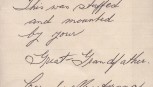 This was stuffed
and mounted
by your
Great-Grandfather.